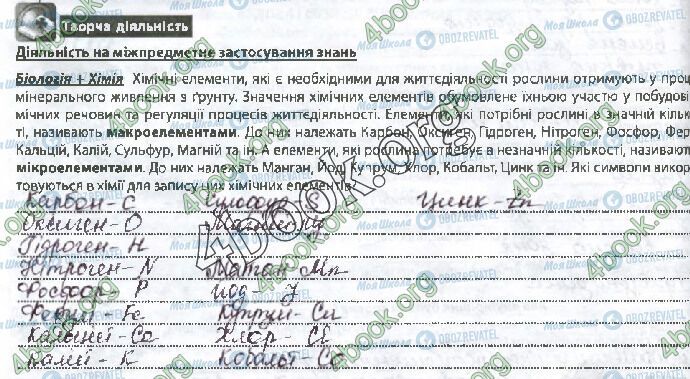 Творча діяльність
Діяльність на міжпредметне застосування знань
Біологія + Хімія Хімічні елементи, які є необхідними для життєдіяльності рослини отримують у проц
мінерального живлення з ґрунту. Значення хімічних елементів обумовлене їхньою участю у побудові
мічних речовин та регуляції процесів життєдіяльності. Елементи, які потрібні рослині в значній кільк
ті, називають макроелементами. До них належать Карбон, Оксиген, Гідроген, Нітроген, Фосфор, Фер
Кальцій, Калій, Сульфур, Магній та ін. А елементи, які рослина потребує в незначній кількості, називают
мікроелементами. До них належать Манган, Йод, Купрум, Хлор, Кобальт, Цинк та ін. Які символи викор
товуються в хімії для запису цих хімічних елементів?
Карбон - C Сульфур S Цинк - Zn
Оксиген - O Магній Mg
Гідроген - H
Нітроген - N Манган Mn
Фосфор - P Йод - J
Ферум - Fe Купрум - Cu
Кальцій - Ca Хлор - Cl
Калій - K Кобальт - Co
4book.org
Моя Школа OBOZREVATEL